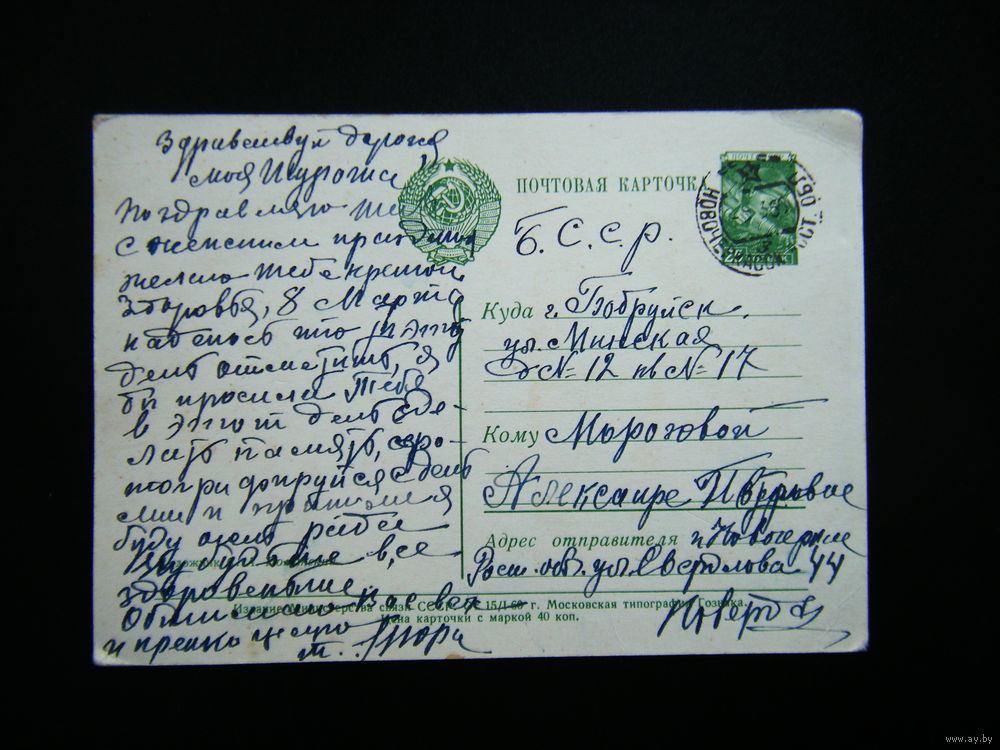 Здравствуй дорогая
моя Шурочка
Поздравляю Тебя
с женским праздником
желаю тебе крепкого
Здоровья, 8 Марта
надеюсь что
день отметить, я
бы просила Тебе
в этот день сде-
лать память, сфо-
тографируйся с деть
ми и пришли
буду очень рада
Ну будьте все
здоровенькие
Обнимаю вас всех
и крепко целую
т. Нюра
ПОЧТОВАЯ КАРТОЧКА
НОВОЧЕРКАССК
Б.С.С.Р.
Куда г. Бобруйск.
ул. Минская
д № 12 кв № 17
Кому Морозовой
Александре Петровне
Адрес отправителя г. Новочерк
Рост. обл. ул. Свердлова 44
Издание Министерства связи СССР 15/I-60 г. Московская типография Гознака.
Цена карточки с маркой 40 коп.
www.ay.by